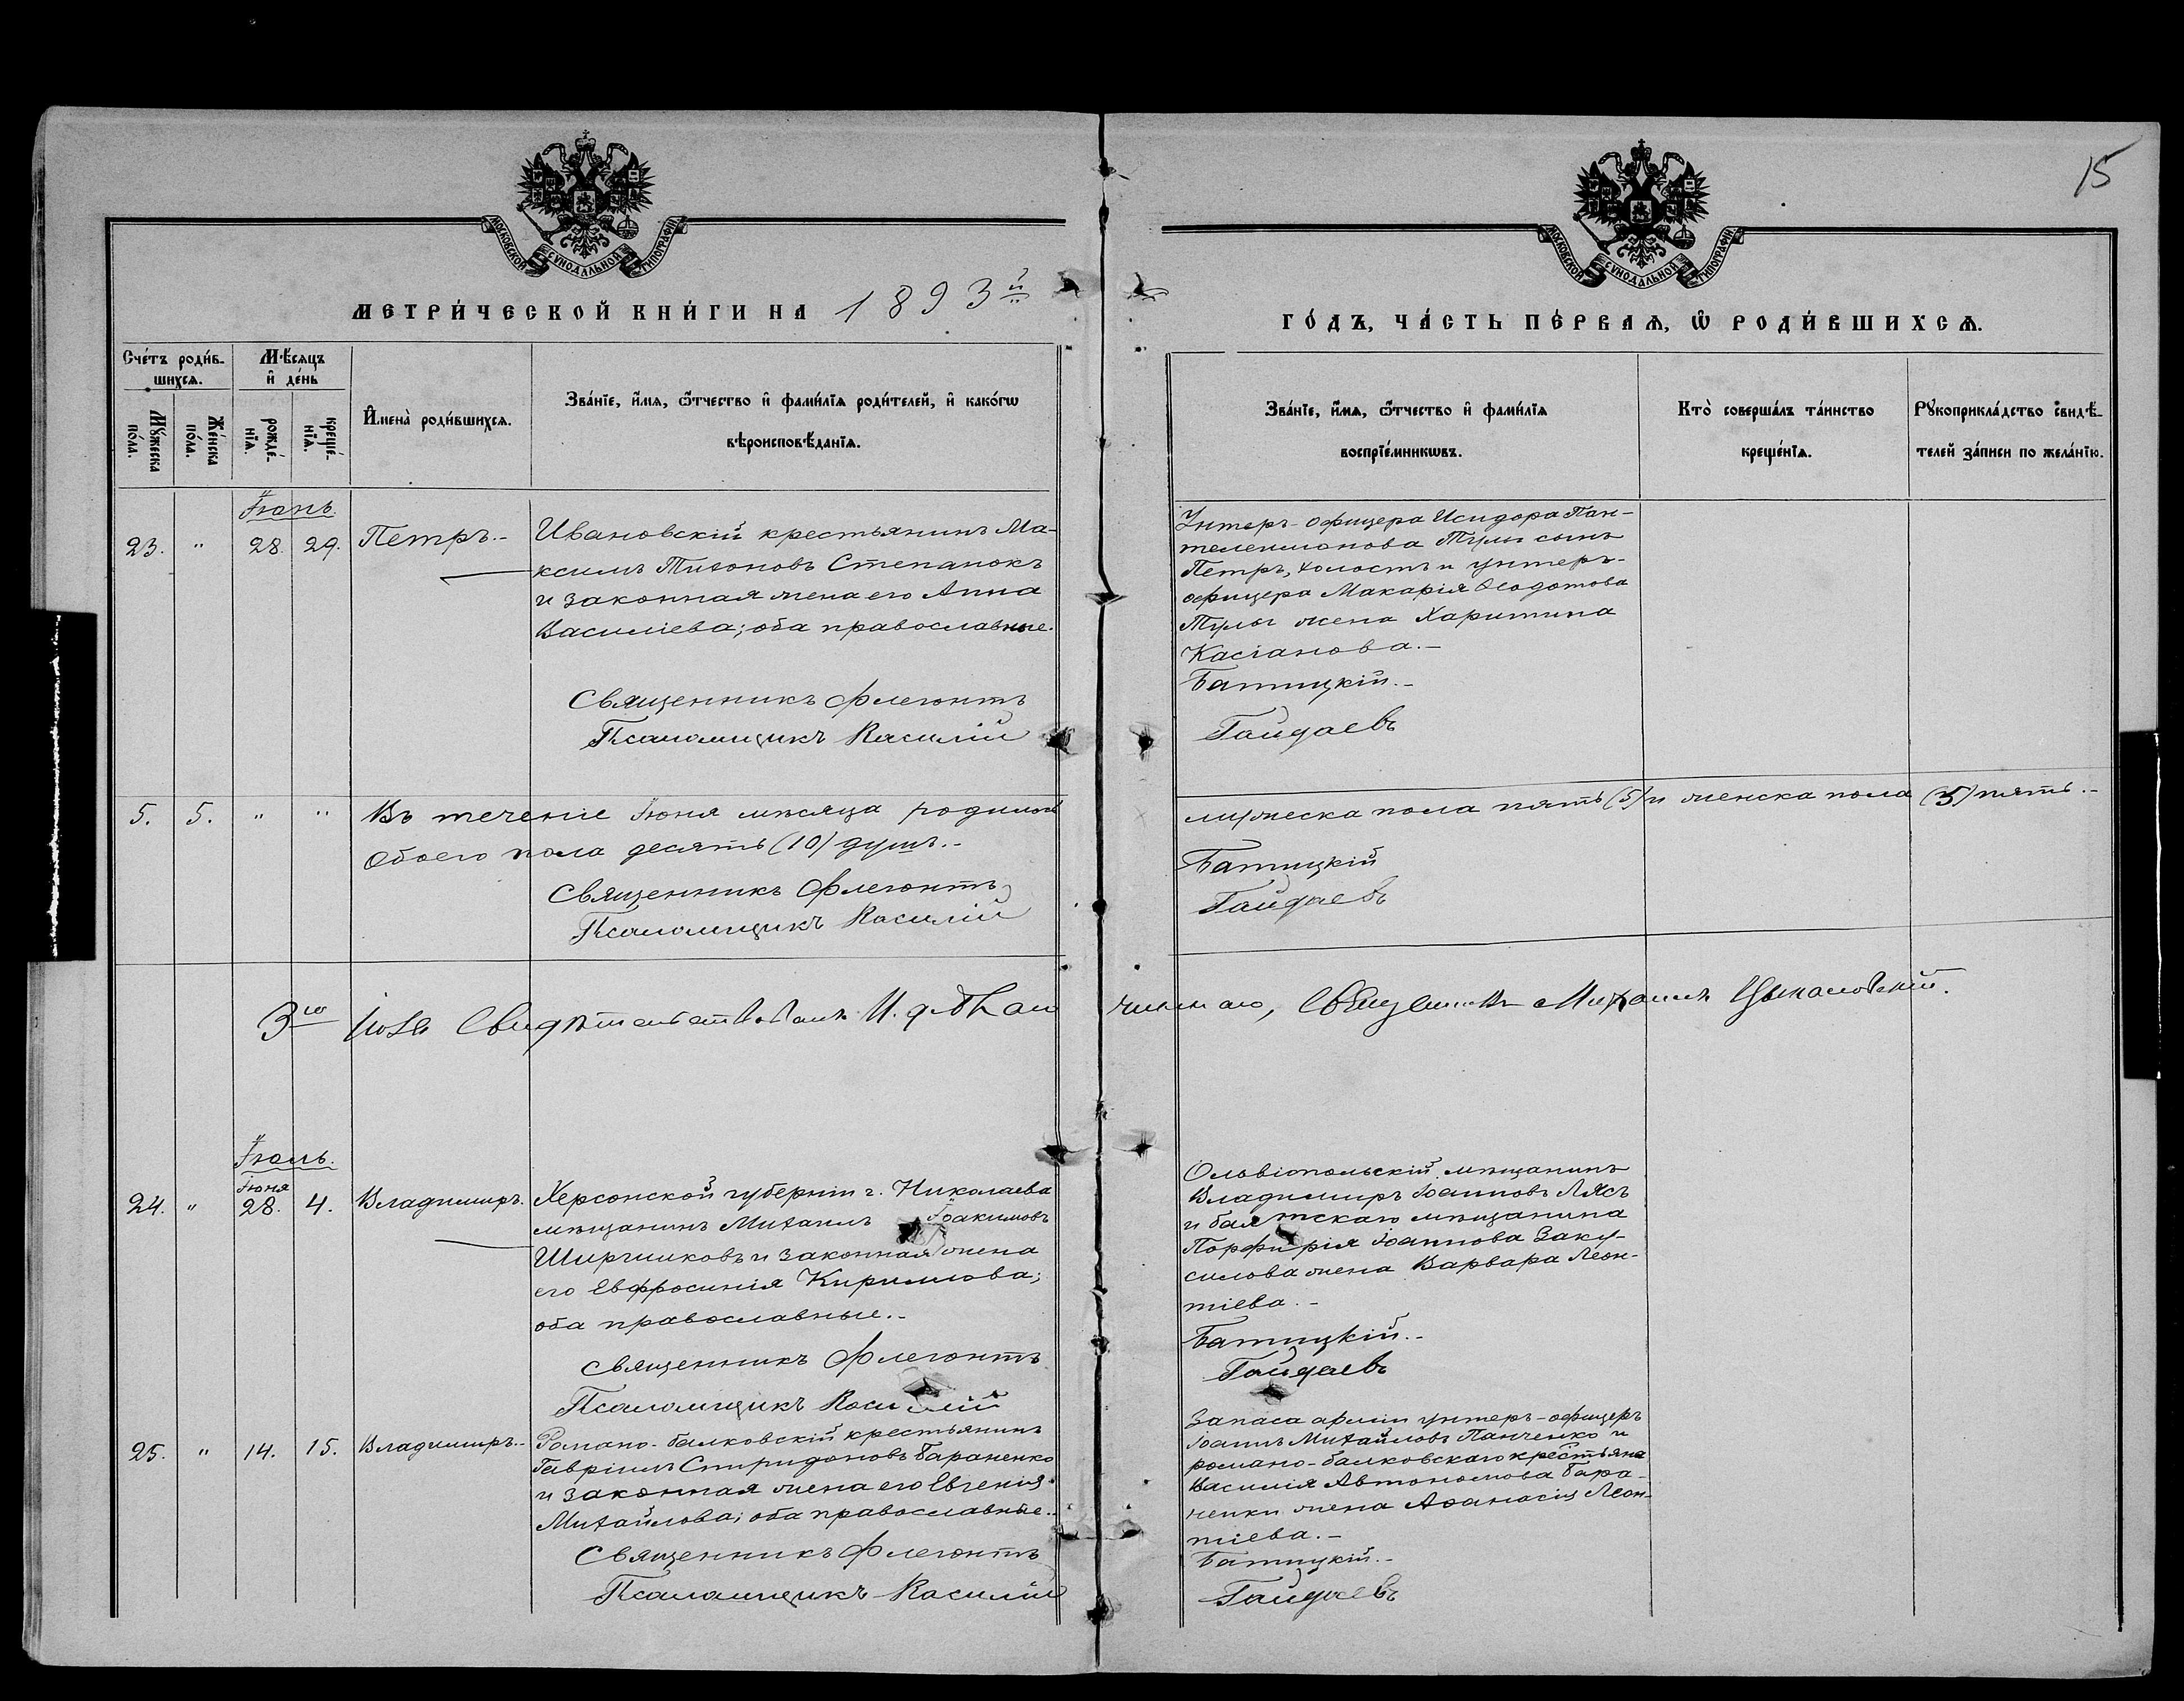 15
МОСКОВСКОЙ СѴНОДАЛЬНОЙ ТИПОГРАФІИ
МОСКОВСКОЙ СѴНОДАЛЬНОЙ ТИПОГРАФІИ
МЕТРИ́ЧЕСКОЙ КНИ́ГИ НА 1893й
ГО́ДЪ, ЧА́СТЬ ПЕ́РВАѦ, Ѡ РОДИ́ВШИХСѦ.
Сче́тъ роди́в-
шихсѧ.
Мꙋ́жеска
по́ла.
Же́нска
по́ла.
Мѣ́сяцъ
и҆ де́нь
рожде́-
нїѧ.
креще́-
нїѧ.
И҆мена̀ роди́вшихсѧ.
Зва́нїе, и҆́мѧ, ѻ҆́тчество и҆ фами́лїѧ роди́телей, и҆ како́гѡ
вѣроисповѣ́данїѧ.
Зва́нїе, и҆́мѧ, ѻ҆́тчество и҆ фами́лїѧ
воспрїе́мникѡвъ.
Кто̀ соверша́лъ та́инство
креще́нїѧ.
Рꙋкоприкла́дство свидѣ́-
телей за́писи по жела́нїю.
Іюнь.
23. " 28. 29. Петръ.-
Ивановскій крестьянинъ Ма-
ксимъ Тихоновъ Степанокъ
и законная жена его Анна
Василіева; оба православные.
Священникъ Флегонтъ
Псаломщикъ Василій
Унтеръ-офицера Исидора Пан-
телеимонова Тулы сынъ
Петръ, холостъ и унтеръ-
офицера Макарія Ѳеодотова
Тулы жена Харитина
Касіанова.-
Батицкій.-
Гайдаевъ
5. 5. " " Въ теченіе Іюня мѣсяца родилось
мужеска пола пять (5) и женска пола (5) пять.-
Обоего пола десять (10) душъ.-
Священникъ Флегонтъ
Псаломщикъ Василій
Батицкій
Гайдаевъ
3го Іюля Свидѣтельствовалъ И. д. Благочиннаго, Священникъ Михаилъ
Іюль.
Іюня
24. " 28. 4. Владимиръ.
Херсонской губерніи г. Николаева
мѣщанинъ Михаилъ Іоакимовъ
Ширшиковъ и законная жена
его Евфросинія Кириллова;
оба православные.-
Священникъ Флегонтъ
Псаломщикъ Василій
Ольвіопольскій мѣщанинъ
Владимиръ Іоанновъ Лясъ
и балтскаго мѣщанина
Порфирія Іоаннова Заку-
силова жена Варвара Леон-
тіева.-
Батицкій.-
Гайдаевъ
25. " 14. 15. Владимиръ.-
Романо-балковскій крестьянинъ
Гавріилъ Спиридоновъ Бараненко
и законная жена его Евгенія
Михайлова; оба православные.-
Священникъ Флегонтъ
Псаломщикъ Василій
Запаса арміи унтеръ-офицеръ
Іоаннъ Михайловъ Панченко и
романо-балковскаго крестьяна
Василія Автономова Бара-
ненки жена Аѳанасія Леон-
тіева.-
Батицкій.-
Гайдаевъ